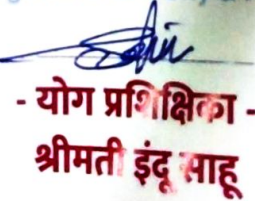 - योग प्रशिक्षिका -
श्रीमती इंदू साहू